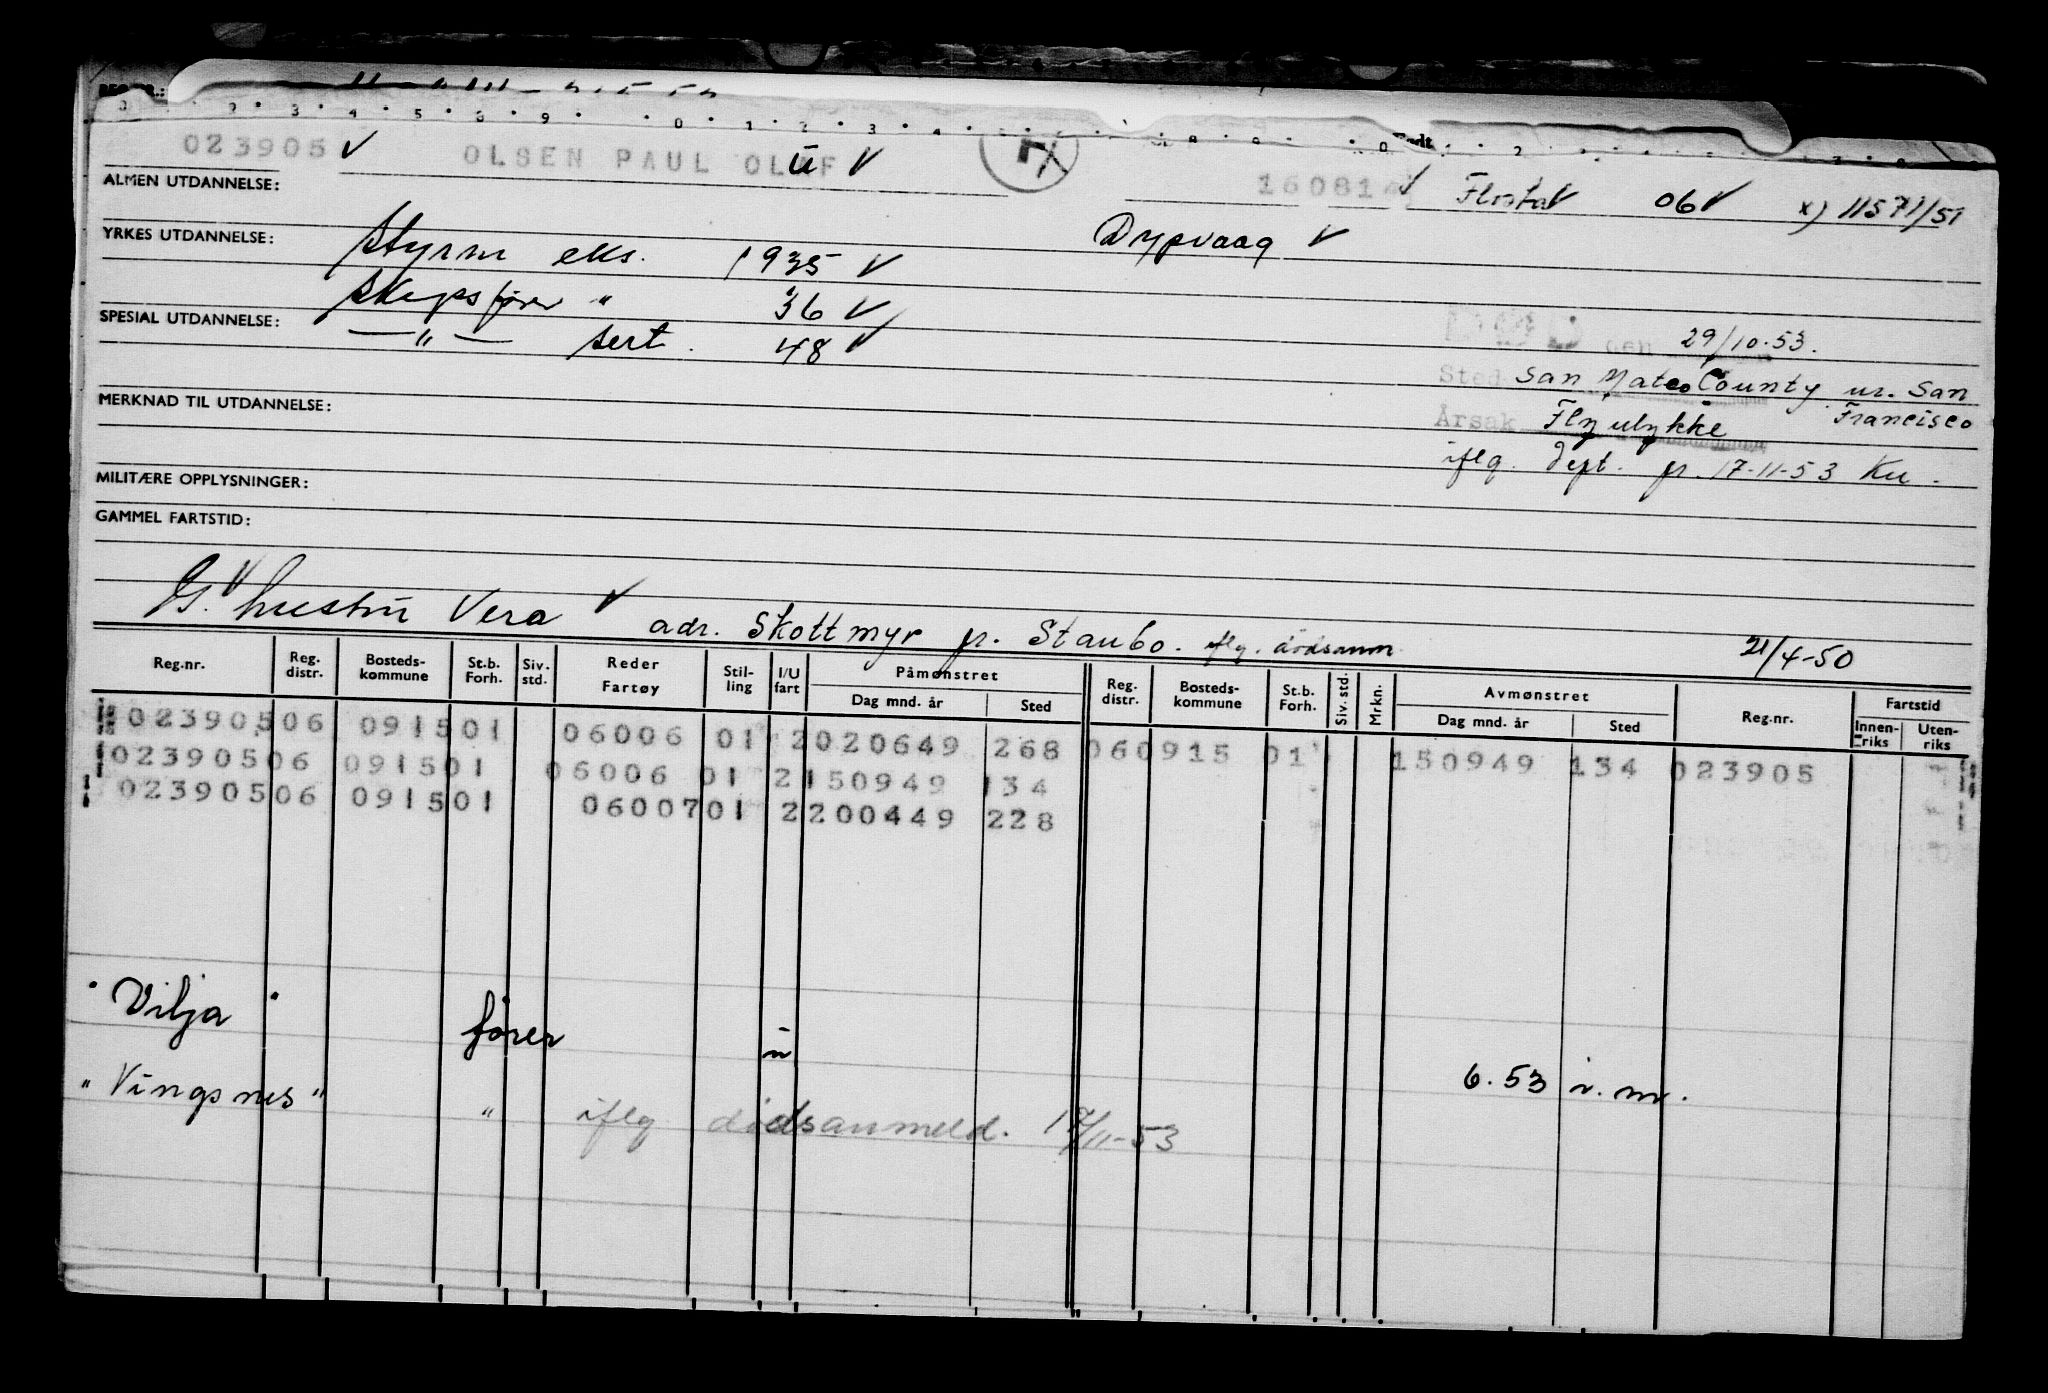 023905 OLSEN PAUL OLUF 160814 Flosta 06 x) 11571/51
ALMEN UTDANNELSE:
Dypvaag
YRKES UTDANNELSE: Styrm eks. 1935
Skipsfører " 36
SPESIAL UTDANNELSE: — " — sert. 48
DØD den 29/10.53.
Sted San Mateo County nr. San Francisco
MERKNAD TIL UTDANNELSE:
Årsak Flyulykke
iflg. dept. pr. 17-11-53 Ku.
MILITÆRE OPPLYSNINGER:
GAMMEL FARTSTID:
G. hustru Vera adr. Skottmyr pr. Staubo. iflg. dødsanm. 21/4-50
Reg.nr. Reg. distr. Bosteds- kommune St.b. Forh. Siv. std. Reder Fartøy Stil- ling I/U fart Påmønstret Dag mnd. år Sted Reg. distr. Bosteds- kommune St.b. Forh. Siv. std. Mrkn. Avmønstret Dag mnd. år Sted Reg.nr. Fartstid Innen- riks Uten- riks
023905 06 0915 01 06006 01 2 020649 268 06 0915 01 150949 134 023905
023905 06 0915 01 06006 01 2 150949 134
023905 06 0915 01 06007 01 2 200449 228
"Vilja" fører u 6.53 i.m.
"Vingsnes" " iflg dødsanmeld. 17/11-53